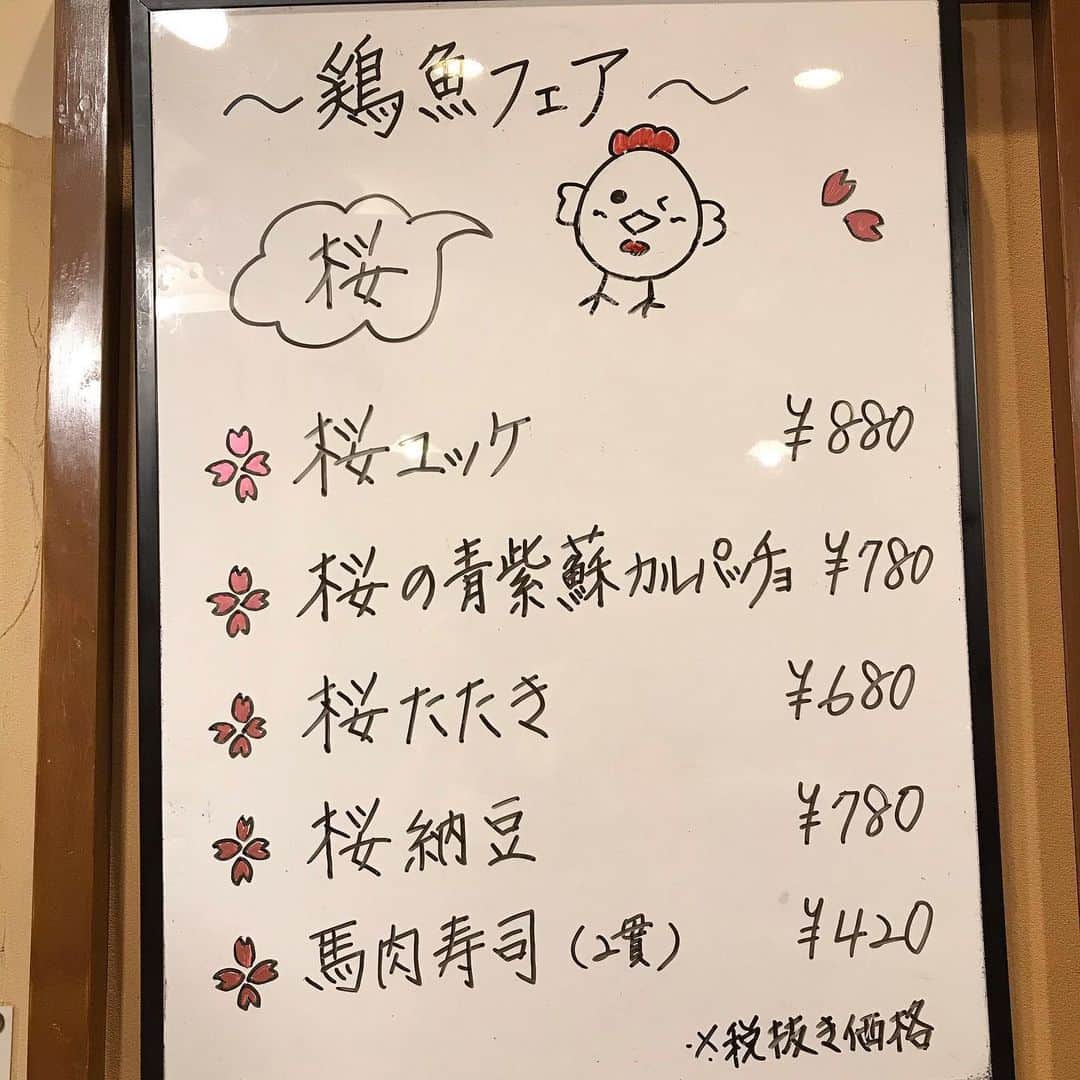 ～鶏魚フェア～
桜
桜ユッケ ¥880
桜の青紫蘇カルパッチョ ¥780
桜たたき ¥680
桜納豆 ¥780
馬肉寿司(2貫) ¥420
※税抜き価格